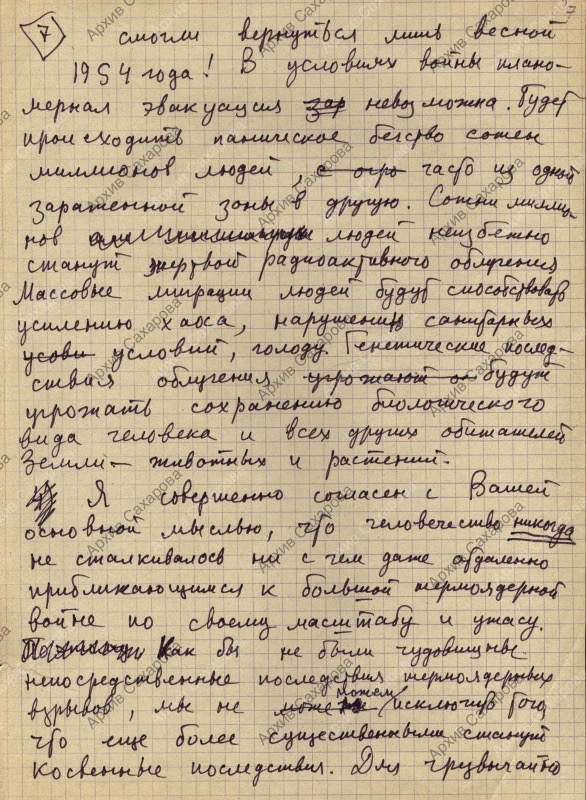 7
смогли вернуться лишь весной
1954 года! В условиях войны плано-
мерная эвакуация зар невозможна. Будет
происходить паническое бегство сотен
миллионов людей, с огро часто из одной
зараженной зоны в другую. Сотни миллио-
нов людей неизбежно
станут жертвой радиоактивного облучения
Массовые миграции людей будут способствовать
усилению хаоса, нарушению санитарных
усови условий, голоду. Генетические послед-
ствия облучения угрожают будут
угрожать сохранению биологического
вида человека и всех других обитателей
Земли – животных и растений.
Я совершенно согласен с Вашей
основной мыслью, что человечество никогда
не сталкивалось ни с чем даже отдаленно
приближающимся к большой термоядерной
войне по своему масштабу и ужасу.
Как бы не были чудовищны
непосредственные последствия термоядерных
взрывов, мы не можем исключить того,
что еще более существенными станут
косвенные последствия. Для чрезвычайно
Архив Сахарова